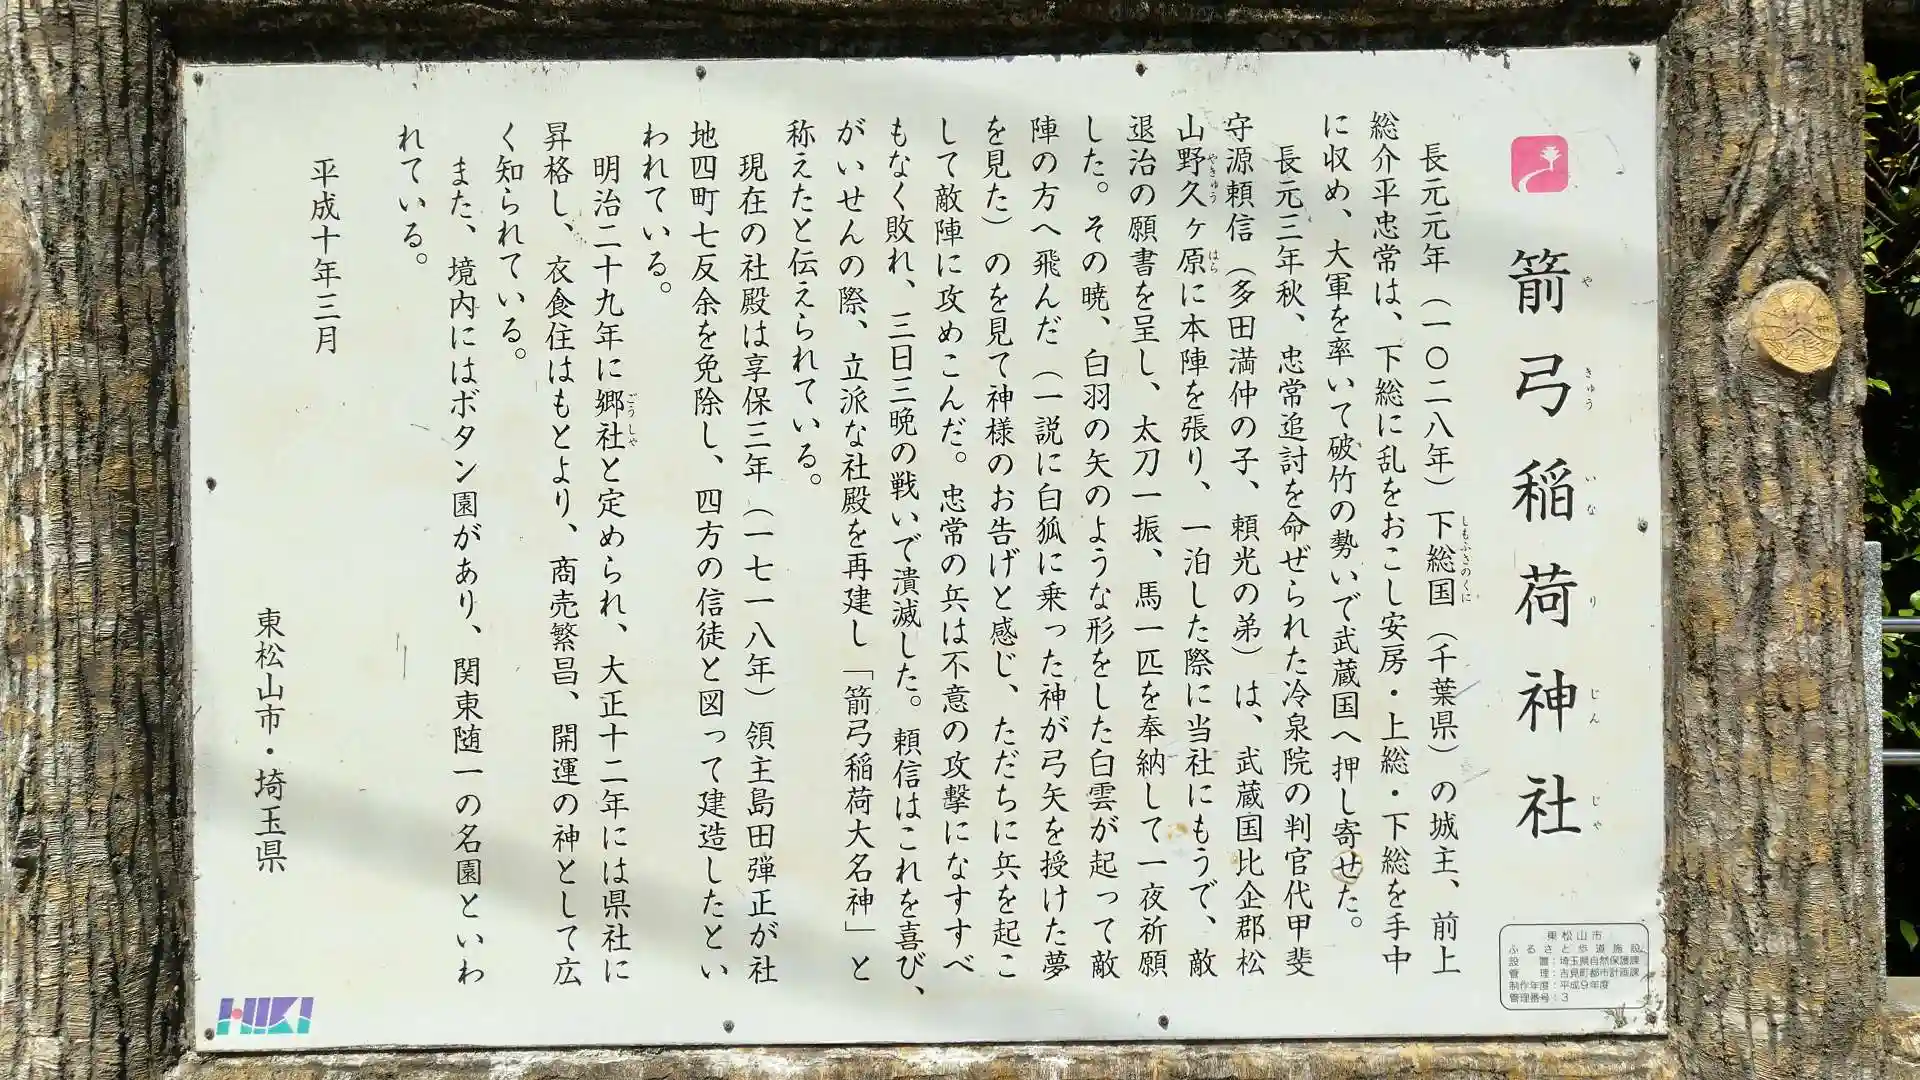 箭弓稲荷神社
やきゅういなりじんじゃ
長元元年（一〇二八年）下総国（千葉県）の城主、前上
しもふさのくに
総介平忠常は、下総に乱をおこし安房・上総・下総を手中
に収め、大軍を率いて破竹の勢いで武蔵国へ押し寄せた。
長元三年秋、忠常追討を命ぜられた冷泉院の判官代甲斐
守源頼信（多田満仲の子、頼光の弟）は、武蔵国比企郡松
山野久ヶ原に本陣を張り、一泊した際に当社にもうで、敵
やきゅう はら
退治の願書を呈し、太刀一振、馬一匹を奉納して一夜祈願
した。その暁、白羽の矢のような形をした白雲が起って敵
陣の方へ飛んだ（一説に白狐に乗った神が弓矢を授けた夢
を見た）のを見て神様のお告げと感じ、ただちに兵を起こ
して敵陣に攻めこんだ。忠常の兵は不意の攻撃になすすべ
もなく敗れ、三日三晩の戦いで潰滅した。頼信はこれを喜び、
がいせんの際、立派な社殿を再建し「箭弓稲荷大名神」と
称えたと伝えられている。
現在の社殿は享保三年（一七一八年）領主島田弾正が社
地四町七反余を免除し、四方の信徒と図って建造したとい
われている。
明治二十九年に郷社と定められ、大正十二年には県社に
ごうしゃ
昇格し、衣食住はもとより、商売繁昌、開運の神として広
く知られている。
また、境内にはボタン園があり、関東随一の名園といわ
れている。
平成十年三月
東松山市・埼玉県
東松山市
ふるさと歩道施設
設置：埼玉県自然保護課
管理：吉見町都市計画課
制作年度：平成9年度
管理番号：3
HIKI